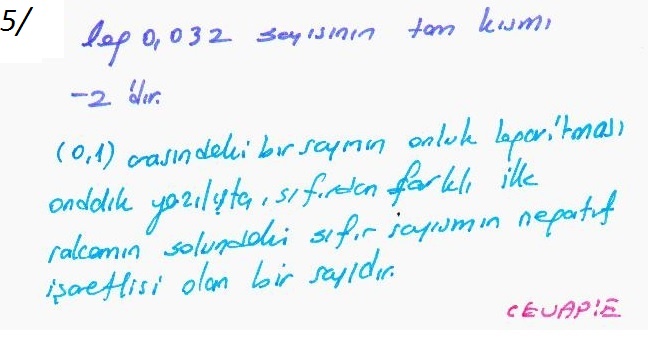 5/
log 0,032 sayısının tam kısmı
-2 'dır.
(0,1) arasındaki bir sayının onluk logaritması
ondalık yazılışta, sıfırdan farklı ilk
rakamın solundaki sıfır sayısının negatif
işaretlisi olan bir sayıdır.
CEVAP:E